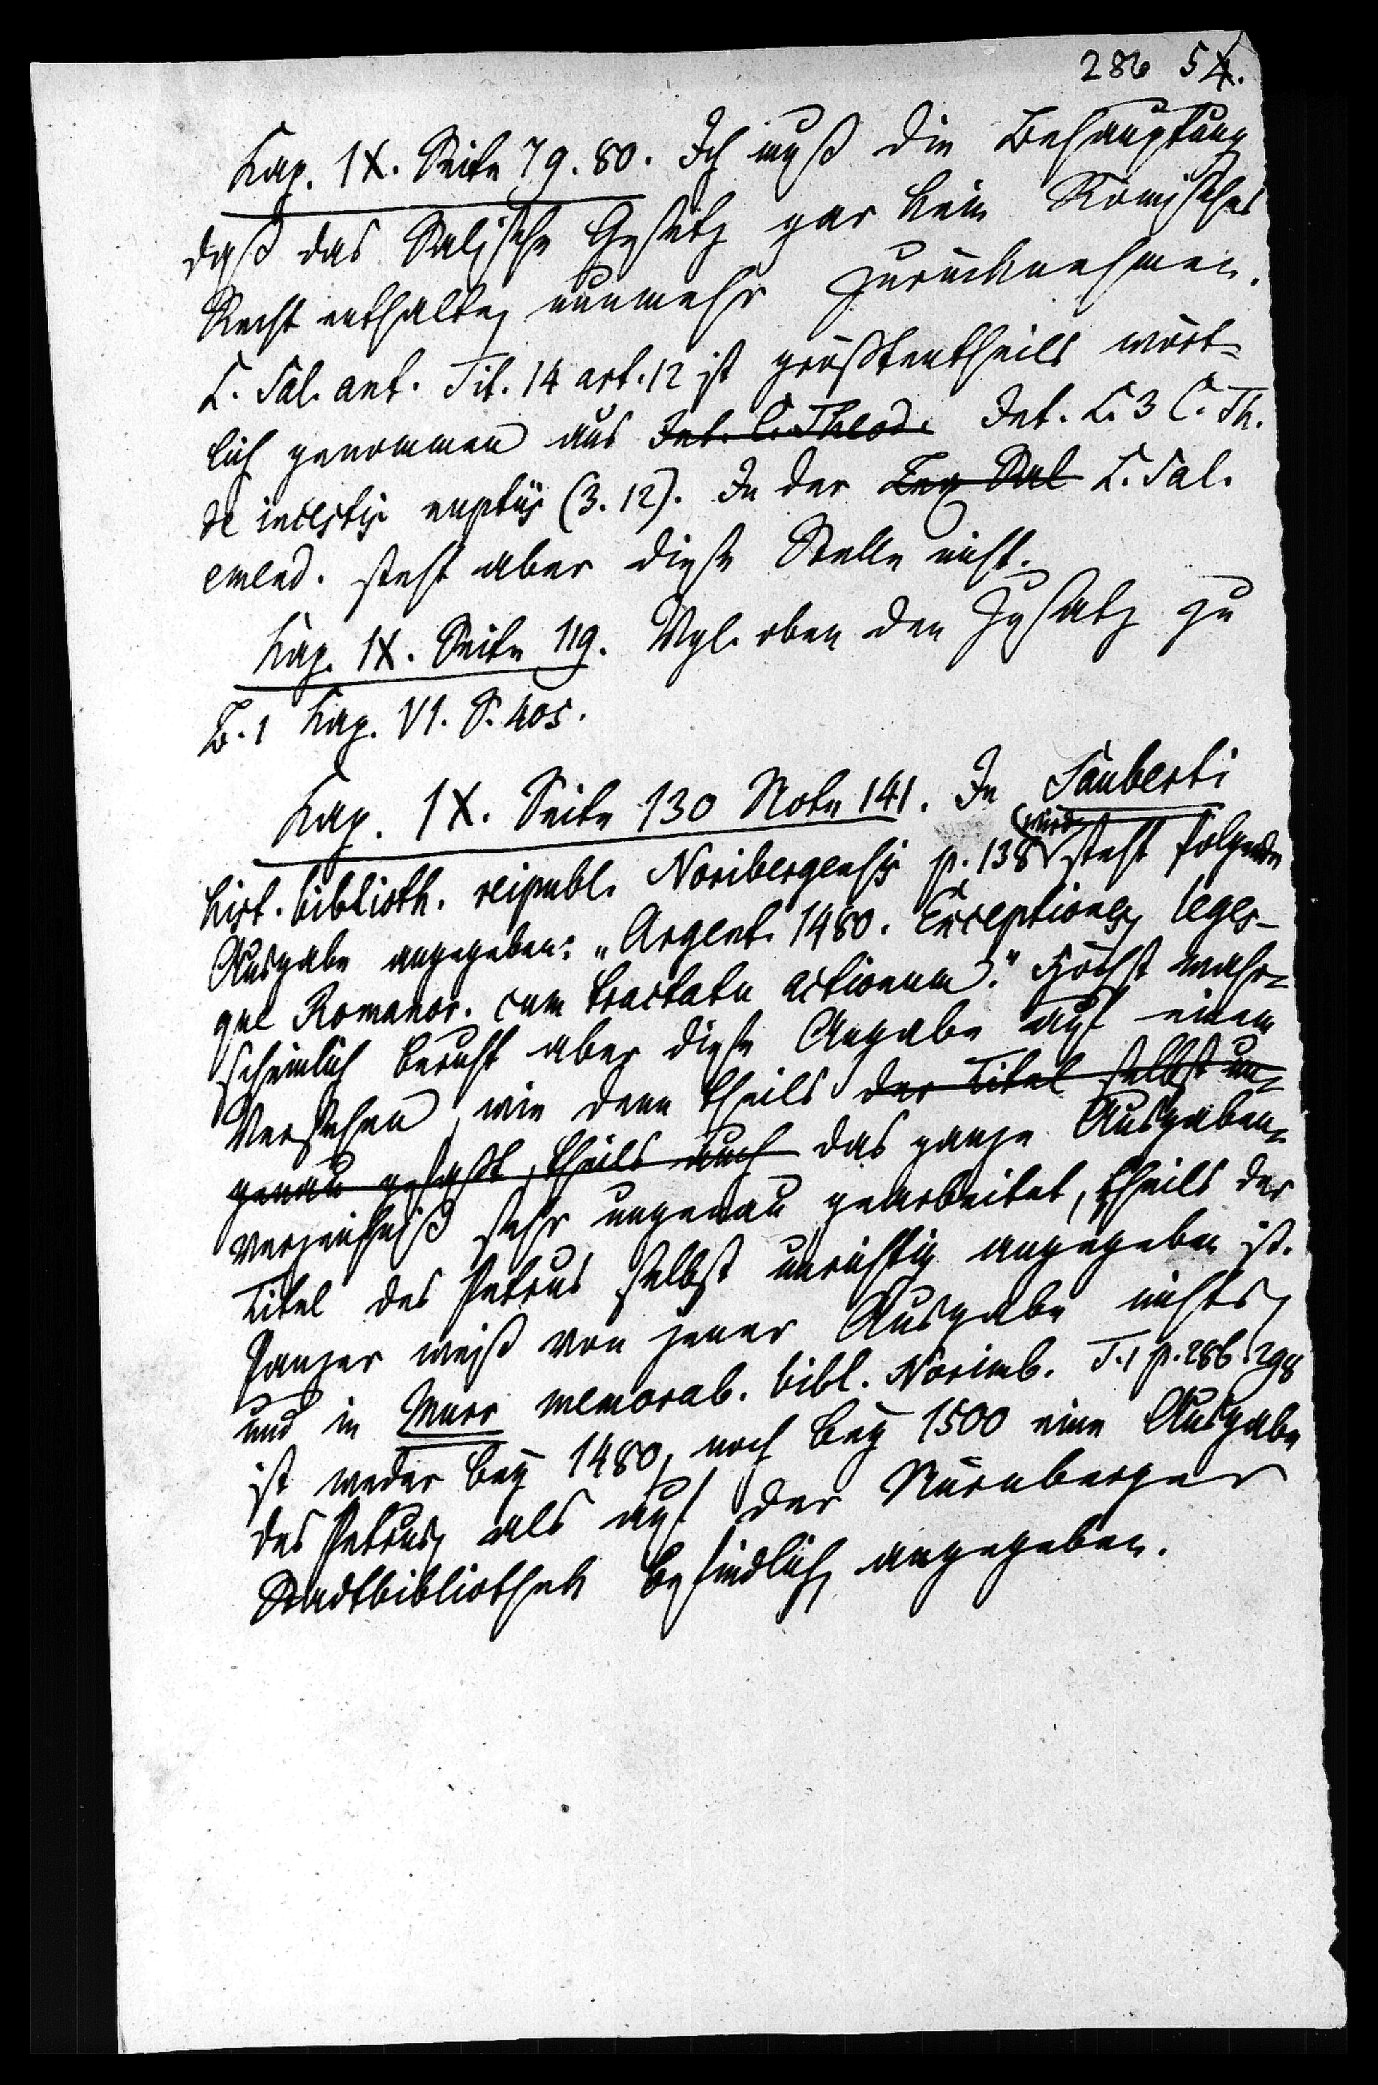 286 54.
Kap. IX. Seite 79. 80. Ich muß die Behauptung
daß das Salische Gesetz gar kein Römisches
Recht enthalte, nunmehr zurücknehmen.
L. Sal. ant. Tit. 14 art. 12 ist größtentheils wört-
lich genommen aus Int. C. Theod. Int. L. 3 C. Th.
de incestis nuptiis (3. 12). In der Lex Sal L. Sal.
emend. steht aber diese Stelle nicht.
Kap. IX. Seite 119. Vgl. oben den Zusatz zu
B. 1 Kap. VI. S. 405.
Kap. IX. Seite 130 Note 141. In Sauberti
wird
hist. biblioth. reipubl. Noribergensis p. 138 steht folgende
Ausgabe angegeben: „Argent. 1480. Exceptiones leges-
que Romanor. cum tractatu actionum." Höchst wahr-
scheinlich beruht aber diese Angabe auf einem
Versehen, wie denn theils der Titel selbst un-
genau gefaßt, theils auch das ganze Ausgaben-
verzeichniß sehr ungenau gearbeitet, theils der
Titel des Petrus selbst unrichtig angegeben ist.
Panzer weiß von jener Ausgabe nichts,
und in Murr memorab. bibl. Norimb. T. 1 p. 286. 298
ist weder bey 1480, noch bey 1500 eine Ausgabe
des Petrus, als auf der Nürnberger
Stadtbibliothek befindlich, angegeben.